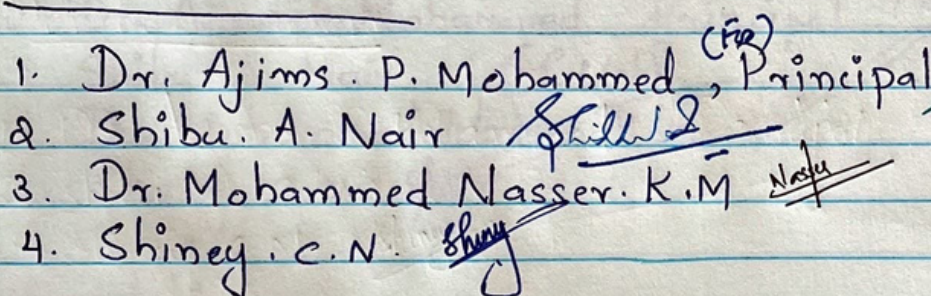 1. Dr. Ajims. P. Mohammed, Principal
2. Shibu. A. Nair
3. Dr. Mohammed Nasser. K.M
4. Shiney. C.N. Shiny